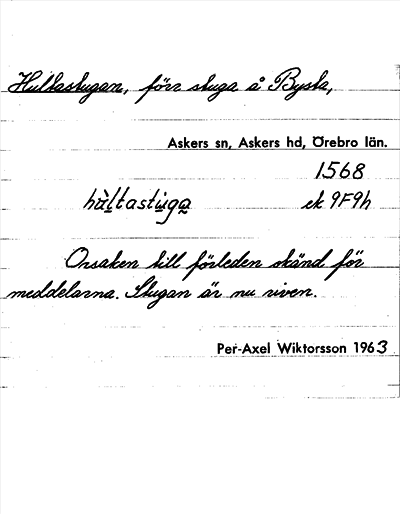 Hultastugan, förr stuga å Bysta,
Askers sn, Askers hd, Örebro län.
1568
hùltastùga ek 9F9h
Orsaken till förleden okänd för
meddelarna. Stugan är nu riven.
Per-Axel Wiktorsson 1963